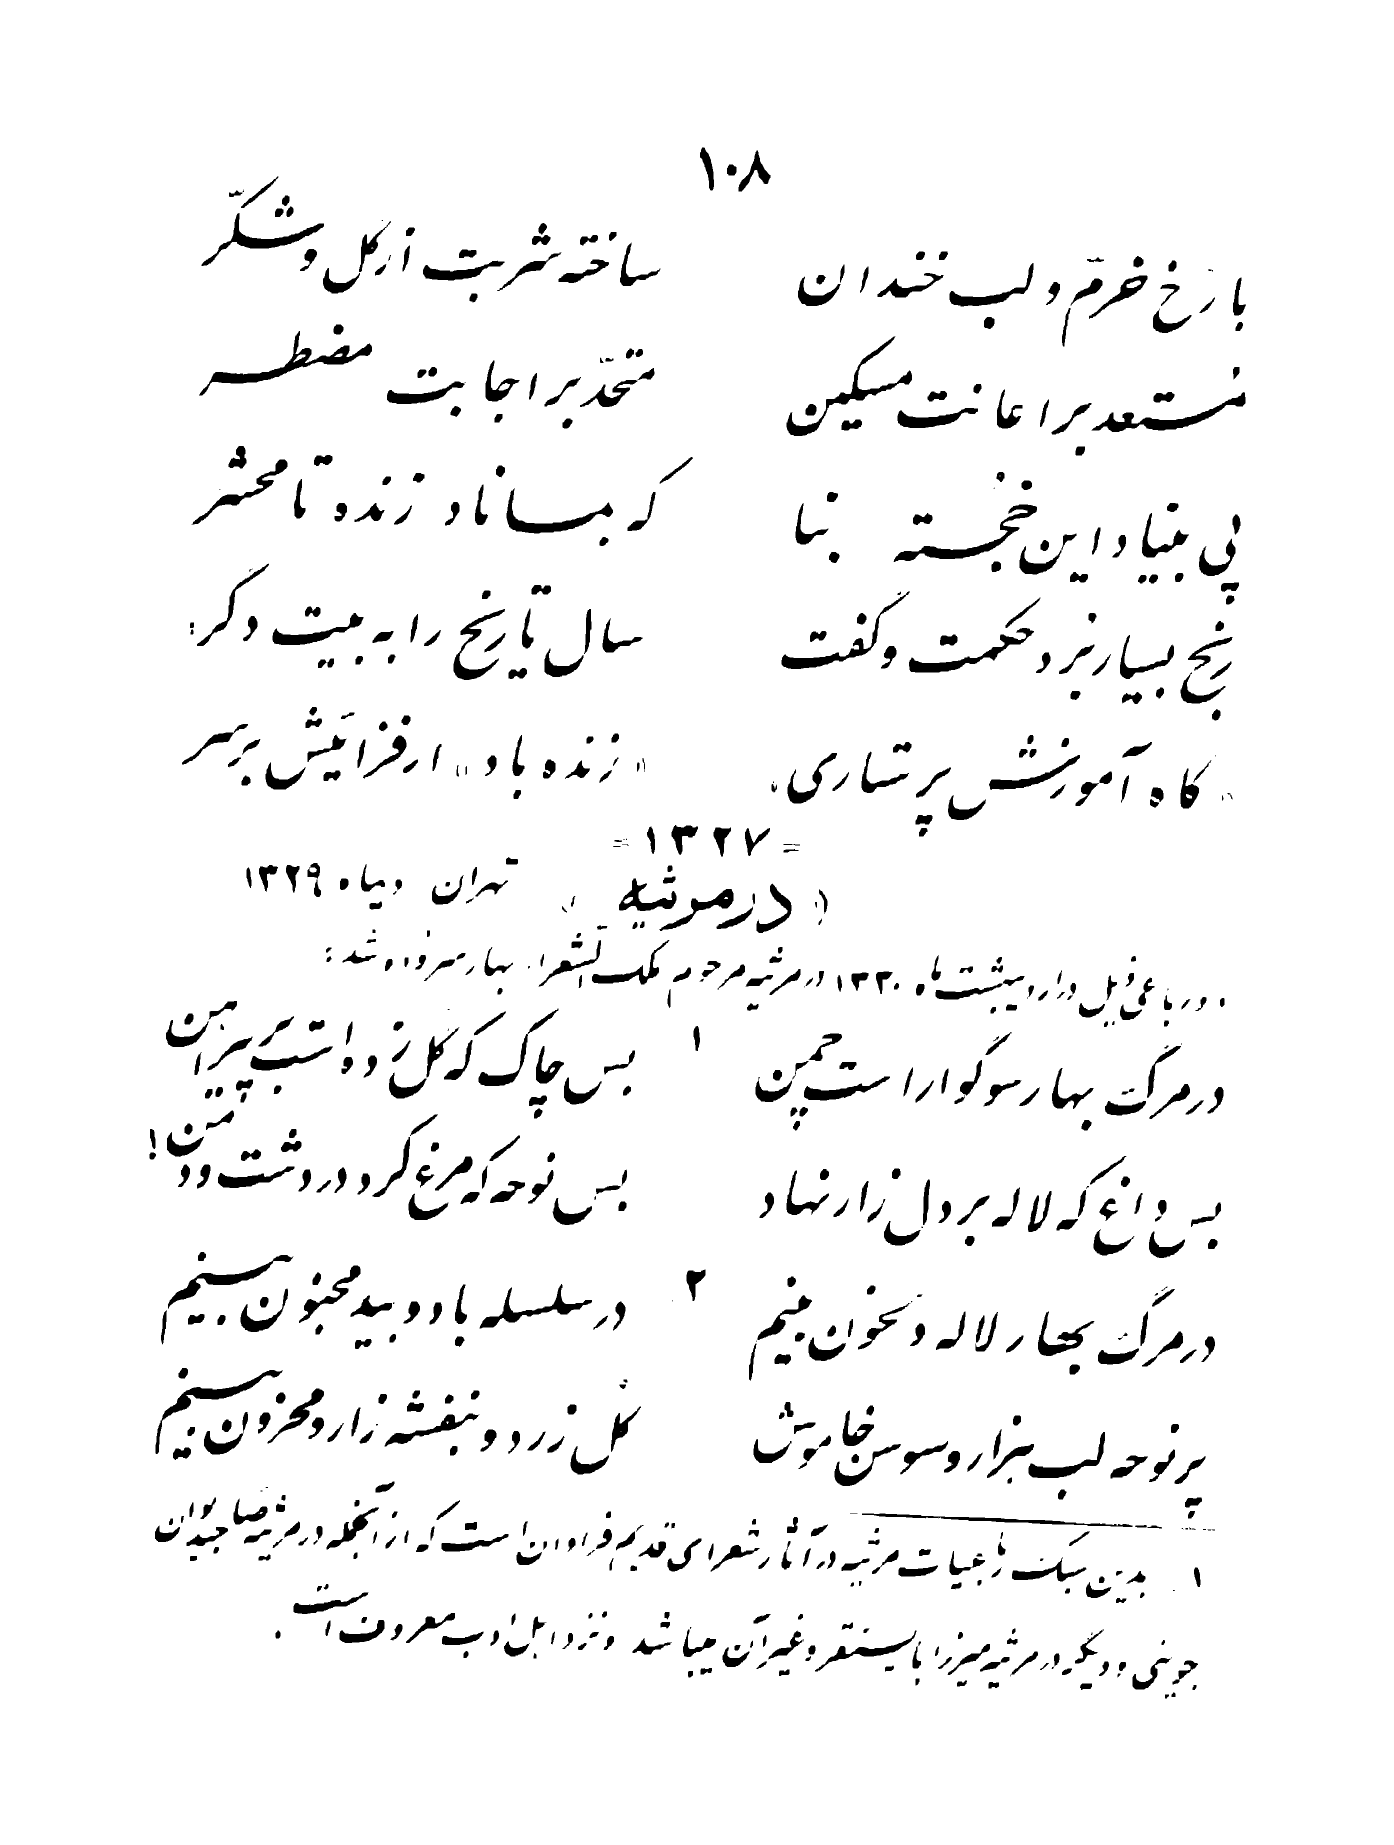 ۱۰۸
با رُخ خرّم و لب خندان ساخته شربت از گل و شکّر
مستعد بر اعانت مسکین متحدّ بر اجابت مضطر
پی بنیاد این خجسته بنا که بماناد زنده تا محشر
رنج بسیار برد حکمت و گفت سال تاریخ را به بیت دگر:
«کاه آموزش پرستاری» «زنده باد» ار فزائیش بر سر
= ۱۳۲۷ =
«در مرثیه» تهران دیماه ۱۳۲۹
دو رباعی ذیل در اردیبهشت ماه ۱۳۳۰ در مرثیه مرحوم ملک الشعراء بهار سروده شد:
۱
در مرگ بهار سوگوار است چمن بس چاک که گل زد و است بر پیراهن
بس داغ که لاله بر دل زار نهاد بس نوحه که مرغ کرد در دشت و دمن!
۲
در مرگ بهار لاله دلخون بینم در سلسله باد و بید مجنون بینم
پر نوحه لب هزار و سوسن خاموش گل زرد و بنفشه زار و محزون بینم
۱. بدین سبک رباعیات مرثیه در آثار شعرای قدیم فراوان است که از آنجمله در مرثیه صاحبدیوان
جوینی و دیگر در مرثیه میرزا بایسنقر و غیر آن میباشد و نزد اهل ادب معروف است.